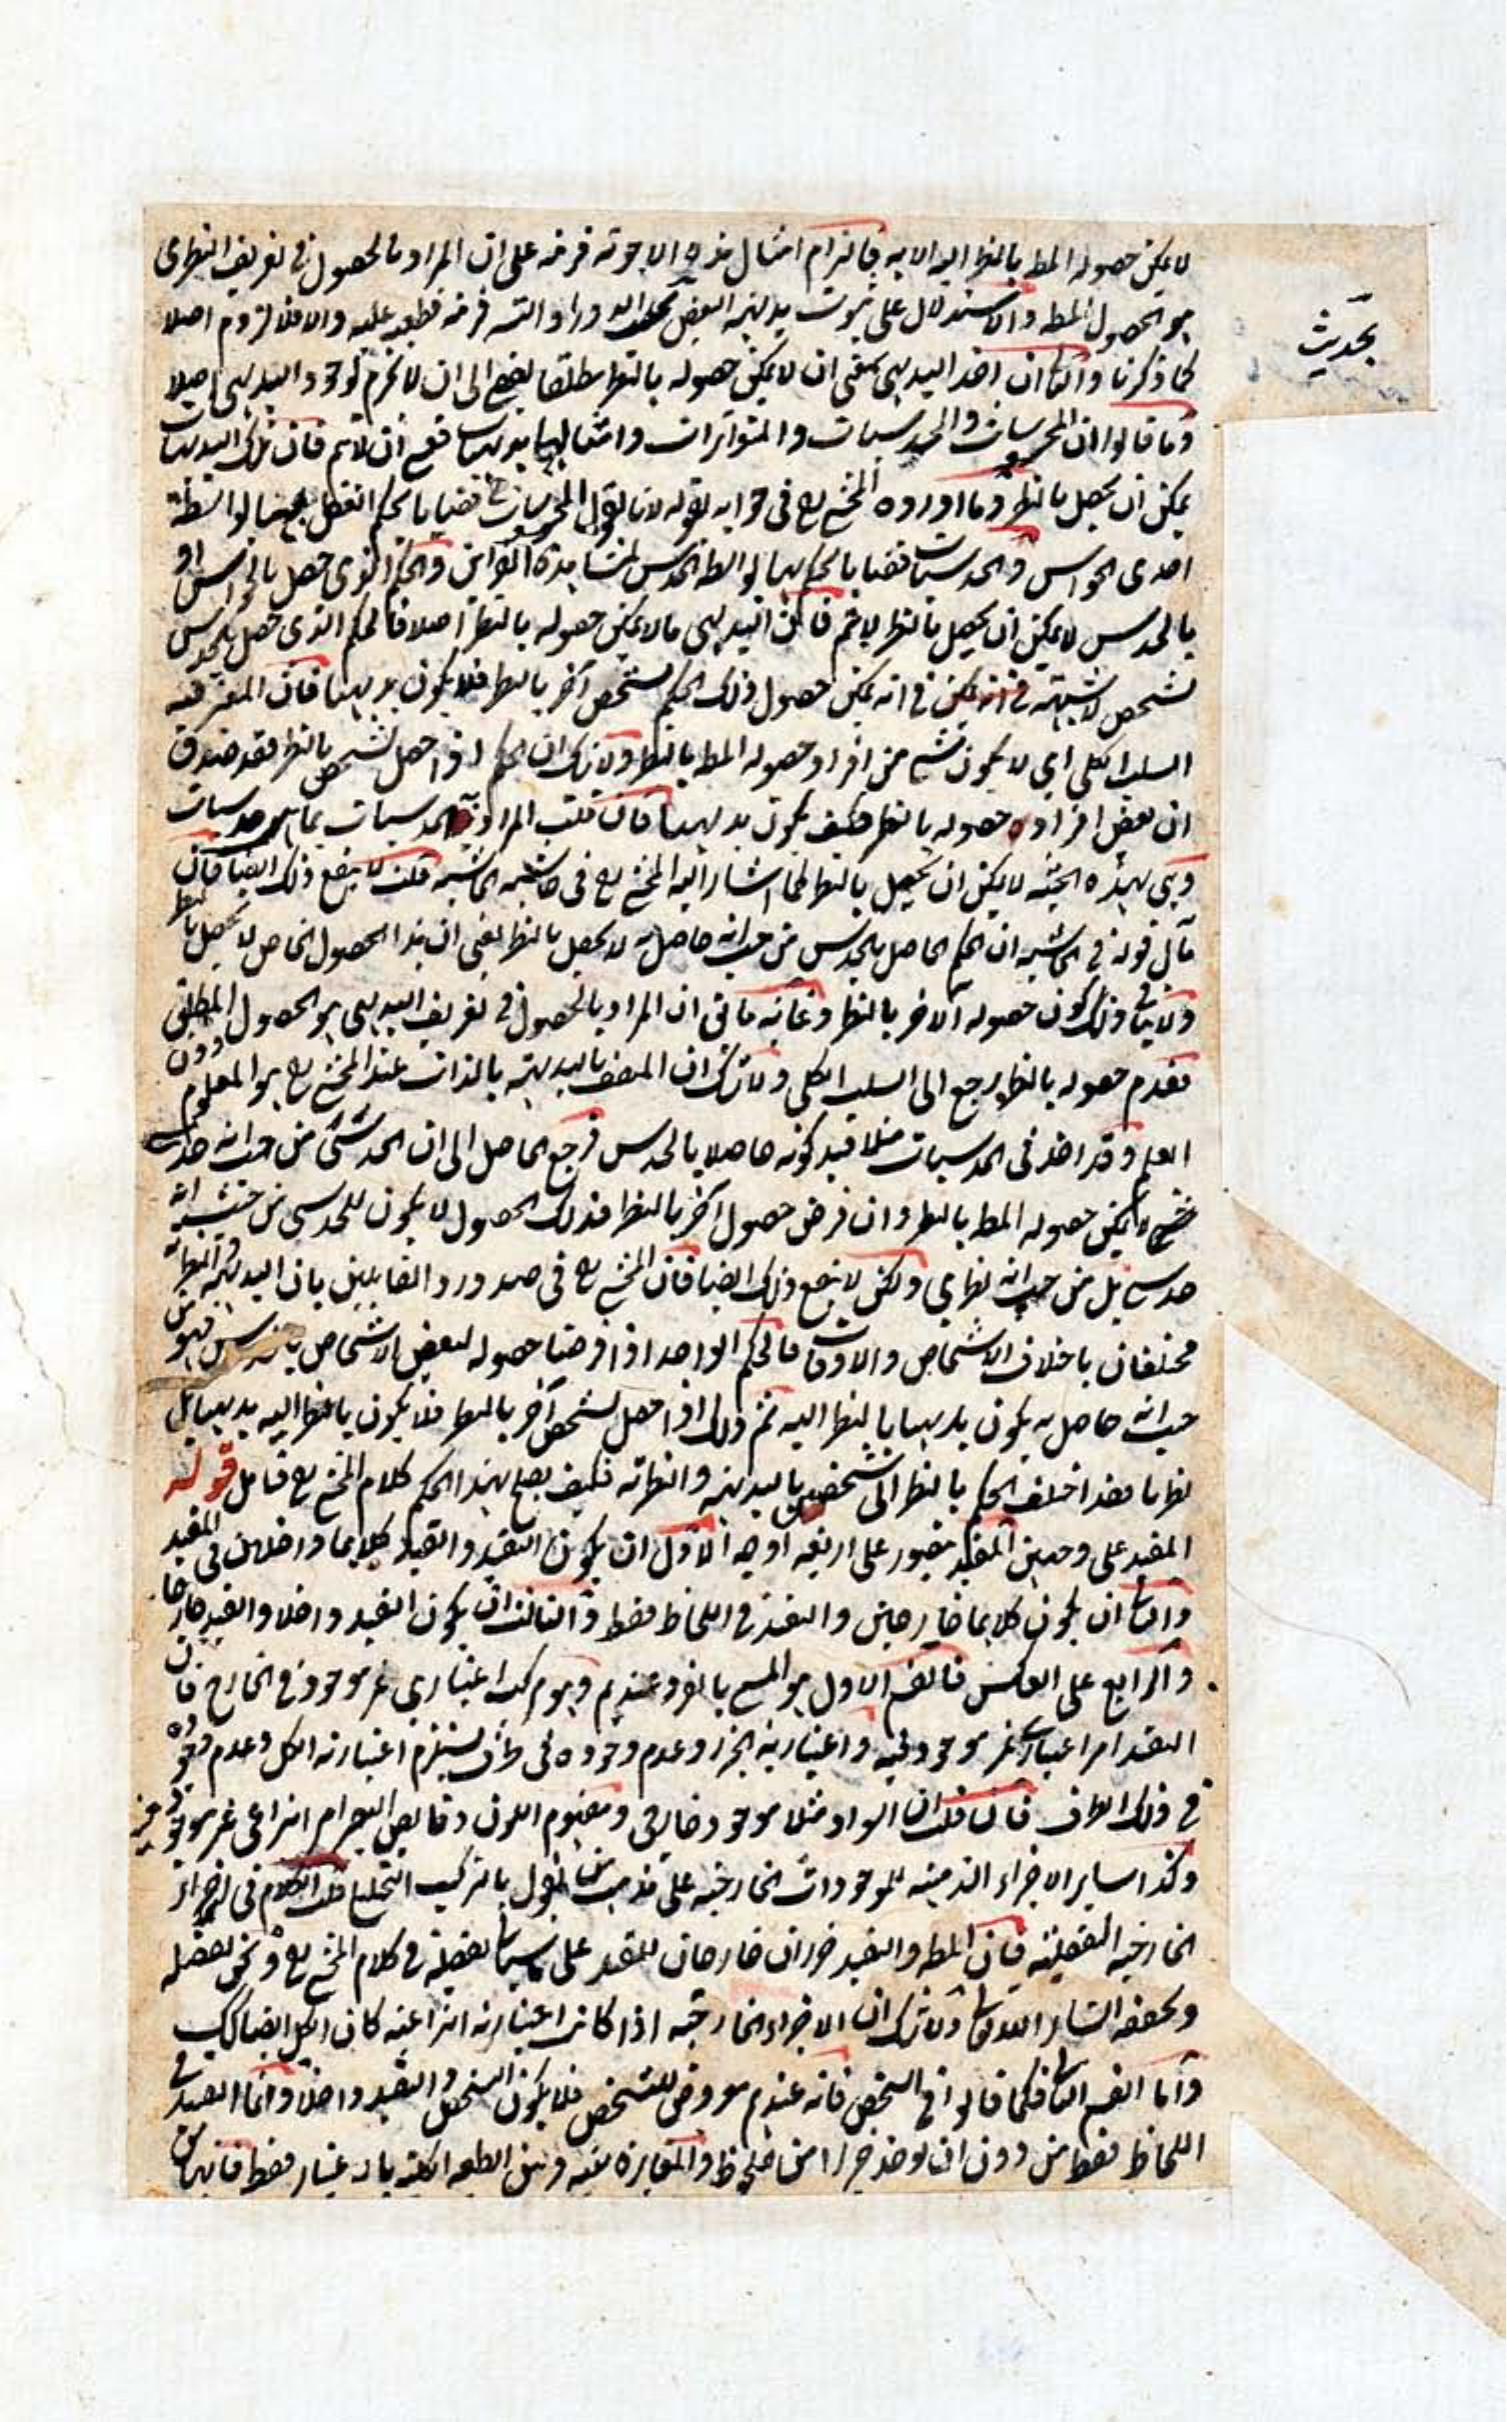 لا يمكن حصوله المط بالنظر اليه الا به فالتزام امثال هذه الاجوبة قرينة على ان المراد بالحصول في تعريف النظرى
هو الحصول المط والاستدلال على ثبوت بديهية البعض بلزوم الدور او التسه قرينة قطعية عليه والا فلا لزوم اصلا
كما ذكرنا والثانى ان اخذ البديهى بمعنى ان لا يمكن حصوله بالنظر مطلقا يفضى الى ان لا نجزم بوجود البديهى اصلا
وما قالوا ان المحسوسات والحدسيات والمتواترات وامثالها بديهيات فمع ان لا يتم فان تلك البديهيات
يمكن ان يحصل بالنظر وما اورده المخ رح فى جوابه بقوله لانا نقول المحسوسات قضايا يحكم العقل بها بواسطة
احدى الحواس والحدسيات قضايا يحكم بها بواسطة الحدس بمشاهدة القراين والحكم الذى حصل بالحواس او
بالحدس لا يمكن ان يحصل بالنظر لا يتم فان البديهى ما لا يمكن حصوله بالنظر اصلا فالحكم الذى حصل بالحدس
لشخص لا شبهة في انه يمكن حصول ذلك الحكم لشخص آخر بالنظر فلا يكون بديهيا فان المعتبر فيه
السلب الكلى اى لا يكون شئ من افراد حصوله المط بالنظر ولا شك ان الحكم اذا حصل لشخص بالنظر فقد صدق
ان بعض افراد حصوله بالنظر فكيف يكون بديهيا فان قلت المراد بالحدسيات بما هى حدسيات
وهى بهذه الحيثية لا يمكن ان يحصل بالنظر كما اشار اليه المخ رح فى حاشية الحاشية قلت لا ينفع ذلك ايضا فان
مآل قوله في الحاشية ان الحكم الحاصل بالحدس من حيث انه حاصل به لا يحصل بالنظر يعنى ان هذا الحصول الخاص لا يحصل بالنظر
ولا ينافى ذلك كون حصوله الآخر بالنظر وغاية ما فى ان المراد بالحصول في تعريف البديهى هو الحصول المطلق
فعدم حصوله بالنظر يرجع الى السلب الكلى ولا شك ان المتصف بالبديهية بالذات عند المخ رح هو المعلوم دون
العلم وقد اخذ فى الحدسيات مثلا قيد كونه حاصلا بالحدس فرجع الحاصل الى ان الحدسى من حيث انه حدسى
لا يمكن حصوله المط بالنظر وان فرض حصول آخر بالنظر فذلك الحصول لا يكون للحدسى من حيث انه
حدسى بل من حيث انه نظرى ولكن لا ينفع ذلك ايضا فان المخ رح فى صدد رد القائلين بان البديهية والنظرية
مختلفان باختلاف الاشخاص والاوقات فالحكم الواحد اذا فرضنا حصوله لبعض الاشخاص بالحدس فهو من
حيث انه حاصل به يكون بديهيا بالنظر اليه ثم ذلك اذا حصل لشخص آخر بالنظر فلا يكون بالنظر اليه بديهيا بل
نظريا فقد اختلف الحكم بالنظر الى شخصين بالبديهية والنظرية فكيف يصح بهذا الحكم كلام المخ رح فتامل قوله
المقيد على وجهين المقيد متصور على اربعة اوجه الاول ان يكون التقييد والقيد كلاهما داخلان فى المقيد
والثانى ان يكون كلاهما خارجين والتقييد في اللحاظ فقط والثالث ان يكون التقييد داخلا والقيد خارجا
والرابع على العكس فالقسم الاول هو المسمى بالفرد عندهم وهو مركب اعتبارى غير موجود في الخارج فان
التقييد امر اعتبارى غير موجود فيه واعتبارية الجزء وعدم وجوده فى ظرف يستلزم اعتبارية الكل وعدم وجوده
في ذلك الظرف فان قلت ان السواد مثلا موجود خارجى ومفهوم اللون وقابض البصر امر انتزاعى غير موجود فيه
وكذا سائر الاجزاء الذهنية للموجودات الخارجية على مذهب من يقول بالتركيب التحليلى قلت الكلام فى الاجزاء
الخارجية الفعلية فان المط والتقييد جزءان خارجان للمقيد على ما سيأتى تفصيله في كلام المخ رح ونحن نفصله
ونحققه انشاء الله تعالى ولا شك ان الاجزاء الخارجية اذا كانت اعتبارية انتزاعية كان الكل ايضا كك
واما القسم الثانى فكما قالوا في الشخص فانه عندهم معروض للتشخص فلا يكون التشخص والتقييد داخلا وانما التقييد في
اللحاظ فقط من دون ان يوخذ جزءا من الملحوظ والمغايرة بينه وبين الطبيعة الكلية بالاعتبار فقط فانهما من
بحديث